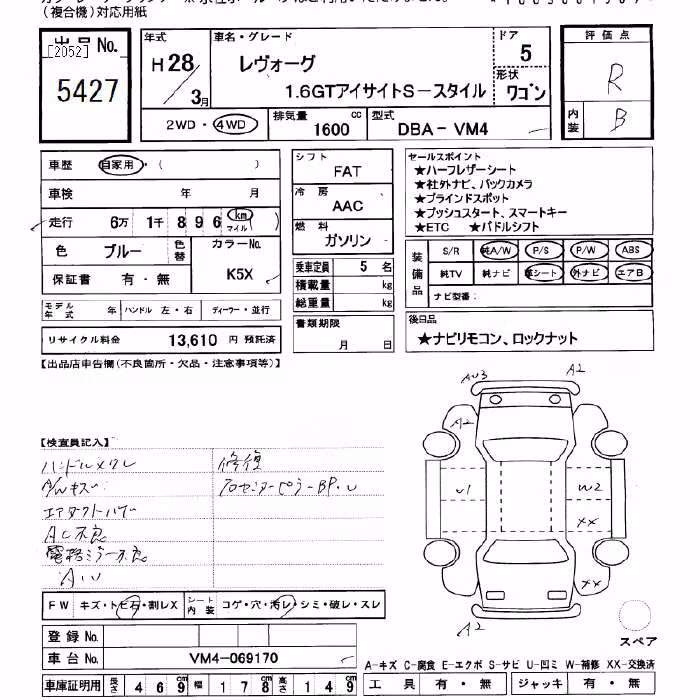 (複合機)対応用紙
出品 No.
[2052]
5427
年式
H28/3月
車名・グレード
レヴォーグ
1.6GTアイサイトS－スタイル
ドア
5
形状
ワゴン
評価点
R
内装
B
2WD・4WD
排気量
1600 cc
型式
DBA－VM4
車歴 自家用・( )
車検 年 月
走行 6万 1千 8 9 6 km マイル
色 ブルー 色替
カラーNo.
K5X
保証書 有・無
モデル年式 年 ハンドル 左・右 ディーラー・並行
リサイクル料金 13,610 円 預託済
シフト
FAT
冷房
AAC
燃料
ガソリン
乗車定員 5 名
積載量 kg
総重量 kg
書類期限
月 日
セールスポイント
★ハーフレザーシート
★社外ナビ、バックカメラ
★ブラインドスポット
★プッシュスタート、スマートキー
★ETC ★パドルシフト
装備品
S/R 純A/W P/S P/W ABS
純TV 純ナビ 革シート 外ナビ エアB
ナビ型番:
後日品
★ナビリモコン、ロックナット
【出品店申告欄(不良箇所・欠品・注意事項等)】
【検査員記入】
ハンドルメクレ
A/Wキズ
エアダクトハゲ
AC不良
電格ミラー不良
AU
修復
AU3
A2
A2
U1
W2
XX
XX
A2
FW キズ・トビ石・割レX
シート内装 コゲ・穴・汚レ・シミ・破レ・スレ
登録 No.
車台 No. VM4-069170
車庫証明用 長さ 4 6 9 cm 幅 1 7 8 cm 高さ 1 4 9 cm
スペア
A-キズ C-腐食 E-エクボ S-サビ U-凹ミ W-補修 XX-交換済
工具 有・無 ジャッキ 有・無